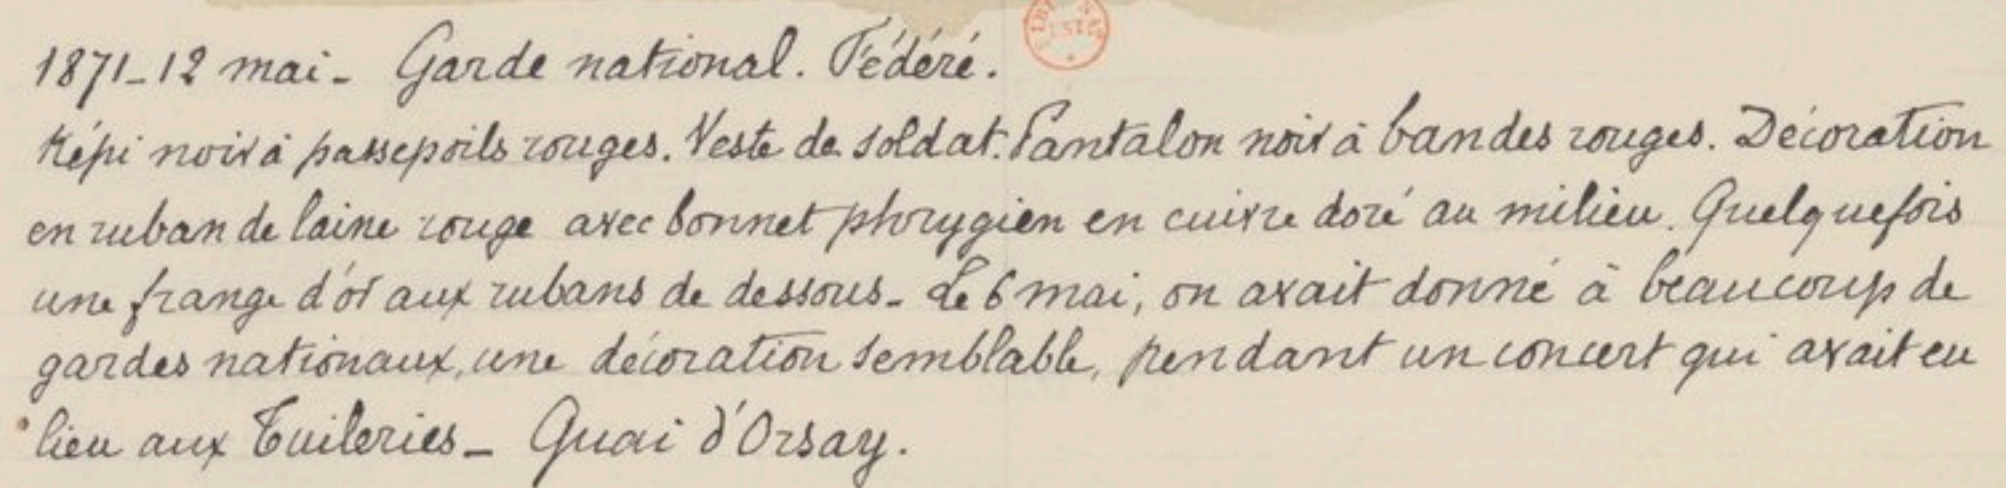 1871_12 mai_ Garde national. Fédéré.
Képi noir à passepoils rouges. Veste de soldat. Pantalon noir à bandes rouges. Décoration
en ruban de laine rouge avec bonnet phrygien en cuivre doré au milieu. Quelquefois
une frange d'or aux rubans de dessous_ Le 6 mai, on avait donné à beaucoup de
gardes nationaux, une décoration semblable, pendant un concert qui avait eu
lieu aux Tuileries_ Quai d'Orsay.